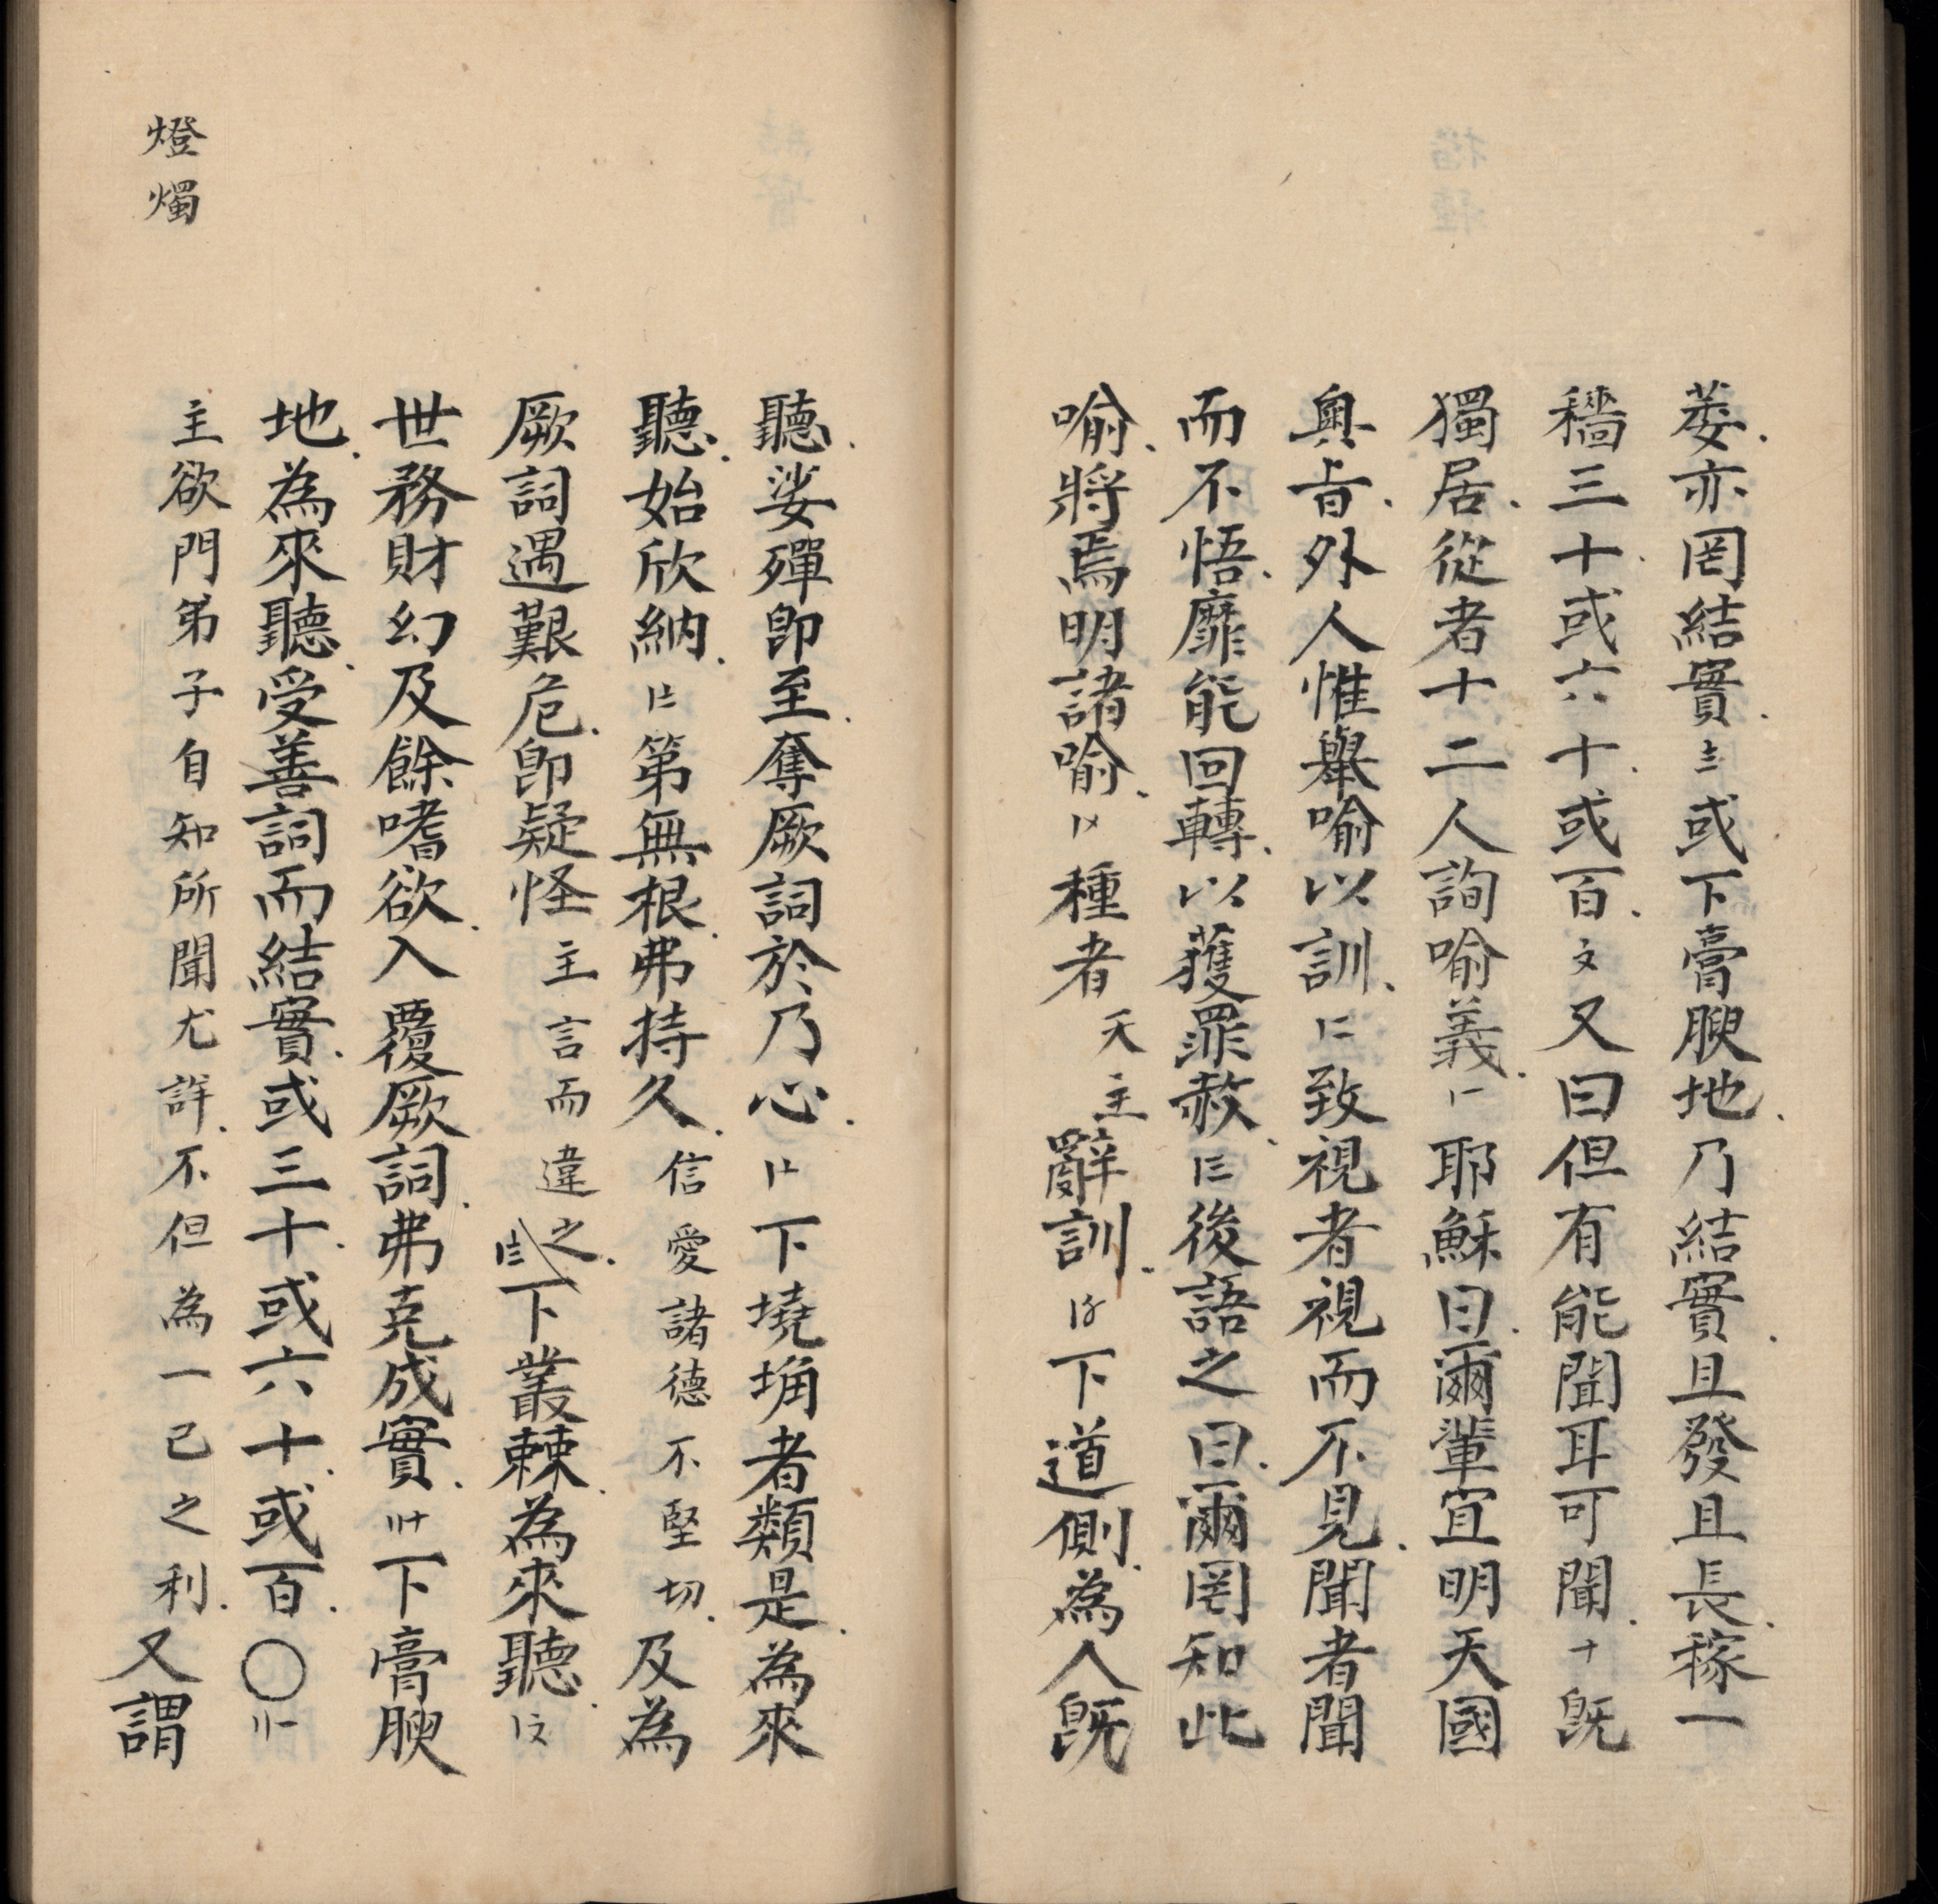 萎亦罔結實〨或下膏腴地乃結實且發且長稼一
穡三十或六十或百〤又曰但有能聞耳可聞十既
獨居從者十二人詢喻義〡一耶穌曰爾輩宜明天國
奧旨外人惟舉喻以訓〡二致視者視而不見聞者聞
而不悟靡能回轉以獲罪赦〡三後語之曰爾罔知此
喻將焉明諸喻〡〤種者天主辭訓〡〥下道側為人既
聽娑殫即至奪厥詞於乃心〡〦下墝埆者類是為來
聽始欣納〡〧第無根弗持久信愛諸德不堅切及為
厥詞遇艱危即疑怪主言而違之〡〨下叢棘為來聽〡〩
世務財幻及餘嗜欲入覆厥詞弗克成實〢十下膏腴
地為來聽受善詞而結實或三十或六十或百〇〢一
主欲門弟子自知所聞尤詳不但為一己之利又謂
燈燭